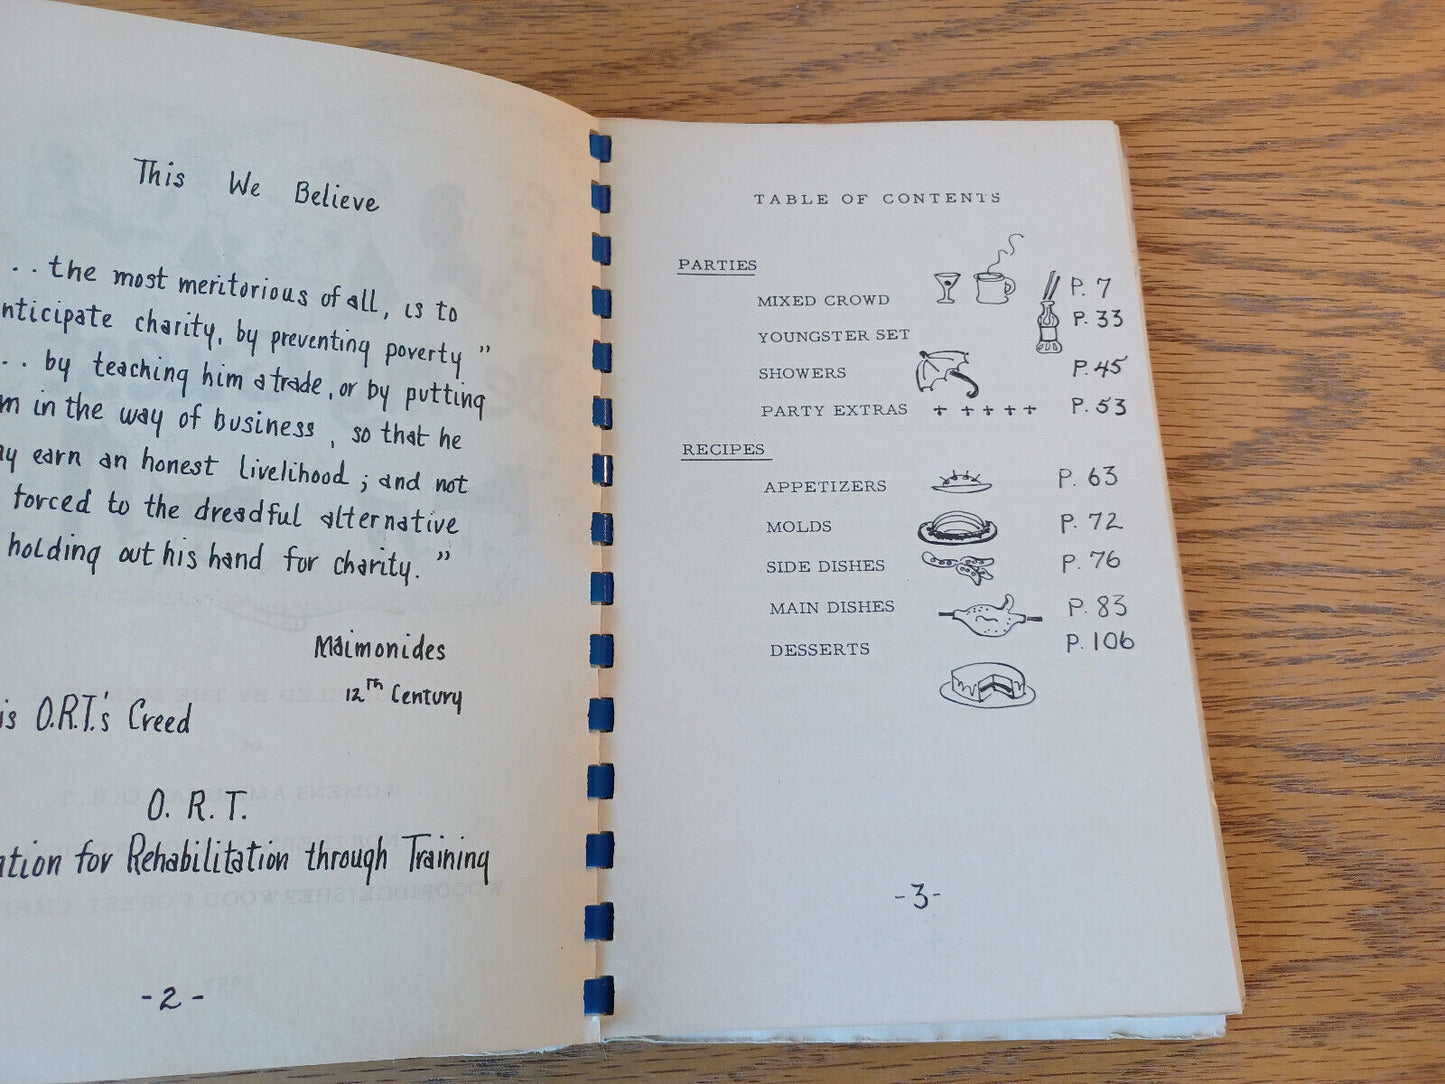 This We Believe
.. the most meritorious of all, is to
nticipate charity, by preventing poverty"
.. by teaching him a trade, or by putting
m in the way of business, so that he
ay earn an honest livelihood; and not
forced to the dreadful alternative
holding out his hand for charity."
Maimonides
12th Century
is O.R.T.'s Creed
O. R. T.
ation for Rehabilitation through Training
-2-
TABLE OF CONTENTS
PARTIES
MIXED CROWD P. 7
YOUNGSTER SET P. 33
SHOWERS P. 45
PARTY EXTRAS P. 53
RECIPES
APPETIZERS P. 63
MOLDS P. 72
SIDE DISHES P. 76
MAIN DISHES P. 83
DESSERTS P. 106
-3-